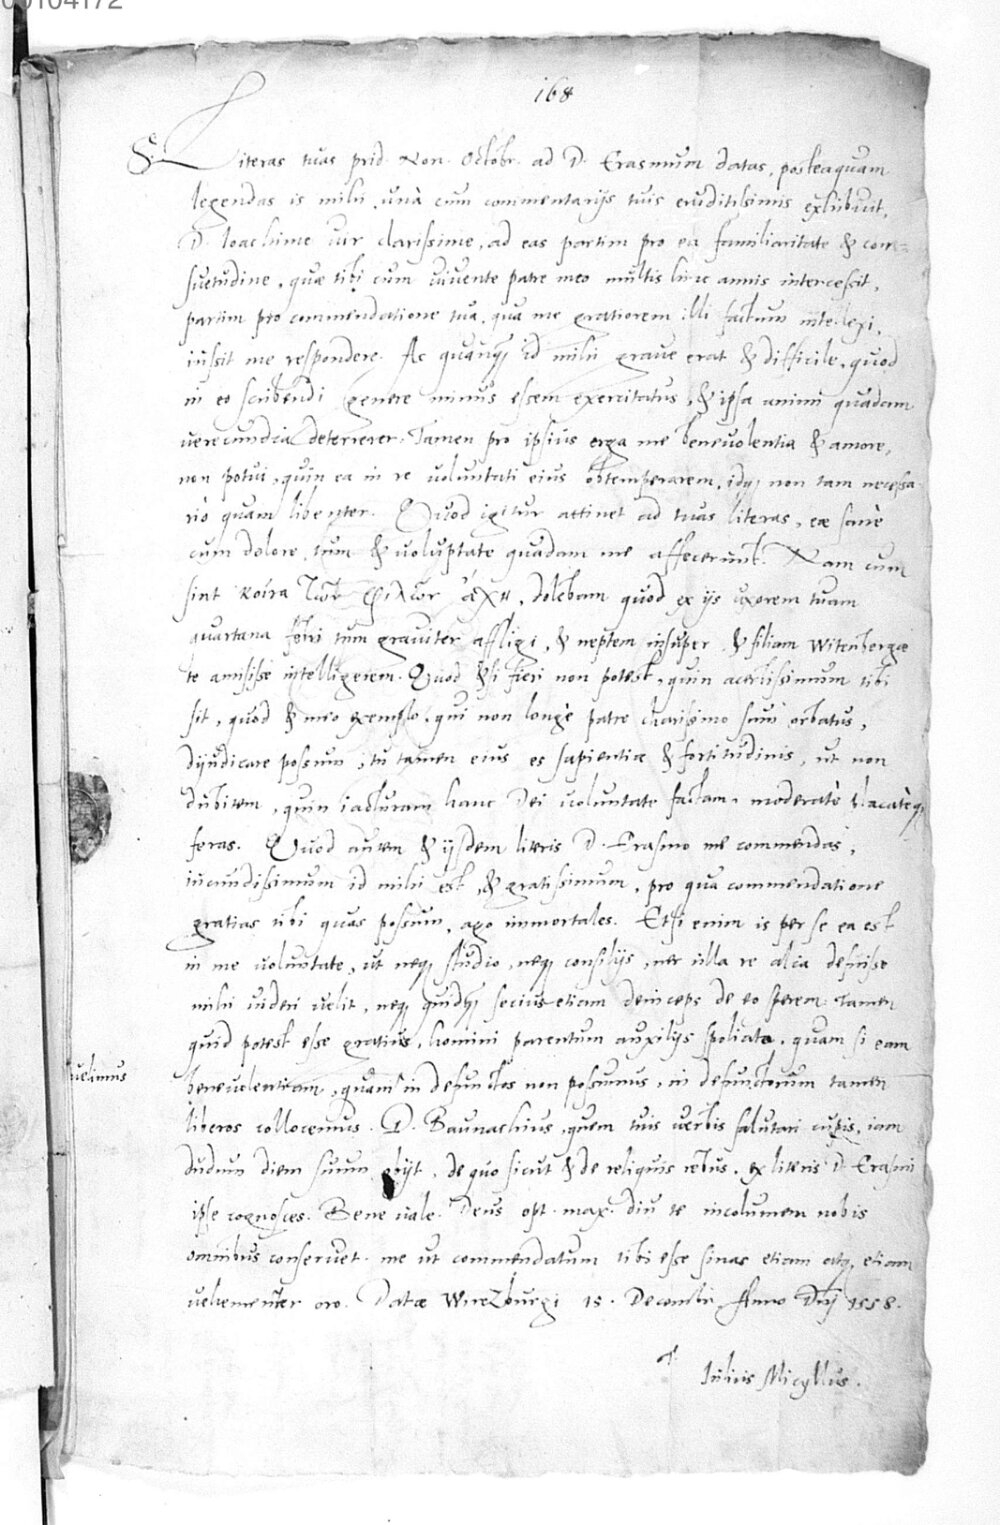 00104172
168
S. Literas tuas prid. Non. Octobr. ad D. Erasmum datas, posteaquam
legendas is mihi, unà cum commentarijs tuis eruditissimis exhibuit,
D. Ioachime vir clarissime, ad eas partim pro ea familiaritate & con-
suetudine, quæ tibi cum vivente patre meo multis hinc annis intercessit,
partim pro commendatione tua, qua me gratiorem illi factum intellexi,
iussit me respondere. Ac quanq; id mihi grave erat & difficile, quod
in eo scribendi genere minus essem exercitatus, & ipsa animi quadam
verecundia deterrerer: Tamen pro ipsius erga me benevolentia & amore,
non potui, quin ea in re voluntati eius obtemperarem, idq; non tam necessa-
riò quam libenter. Quod igitur attinet ad tuas literas, eæ sanè
cum dolore, tum & voluptate quadam me affecerunt. Nam cum
sint κοίνα τῶν φίλων ἄχη, dolebam quod ex ijs uxorem tuam
quartana febri tum graviter affligi, & neptem insuper & filiam Witenbergæ
te amisisse intelligerem. Quod & si fieri non potest, quin acerbissimum tibi
sit, quod & meo exemplo, qui non longè patre charissimo sum orbatus,
dijudicare possum, tu tamen eius es sapientiæ & fortitudinis, ut non
dubitem, quin iacturam hanc Dei voluntate factam, moderatè placatèq;
feras. Quod autem & ijsdem literis D. Erasmo me commendas,
iucundissimum id mihi est, & gratissimum, pro qua commendatione
gratias tibi quas possum, ago immortales. Etsi enim is per se ea est
in me voluntate, ut neq; studio, neq; consilijs, nec ulla re alia defuisse
mihi videri velit, neq; quidq; secius etiam deinceps de eo sperem: Tamen
quid potest esse gratius, homini parentum auxilijs spoliato, quam si eam
velimus
benevolentiam, quam in defunctos non possumus, in defunctorum tamen
liberos collocemus. D. Baunachius, quem tuis verbis salutari cupis, iam
dudum diem suum obijt, de quo sicut & de reliquis rebus, ex literis D. Erasmi
ipse cognosces. Bene vale. Deus opt. max. diu te incolumem nobis
omnibus conservet. me ut commendatum tibi esse sinas etiam atq; etiam
vehementer oro. Datæ Wirezburgi 15. Decembr. Anno Dnj 1558.
T.
Iulius Micyllus.